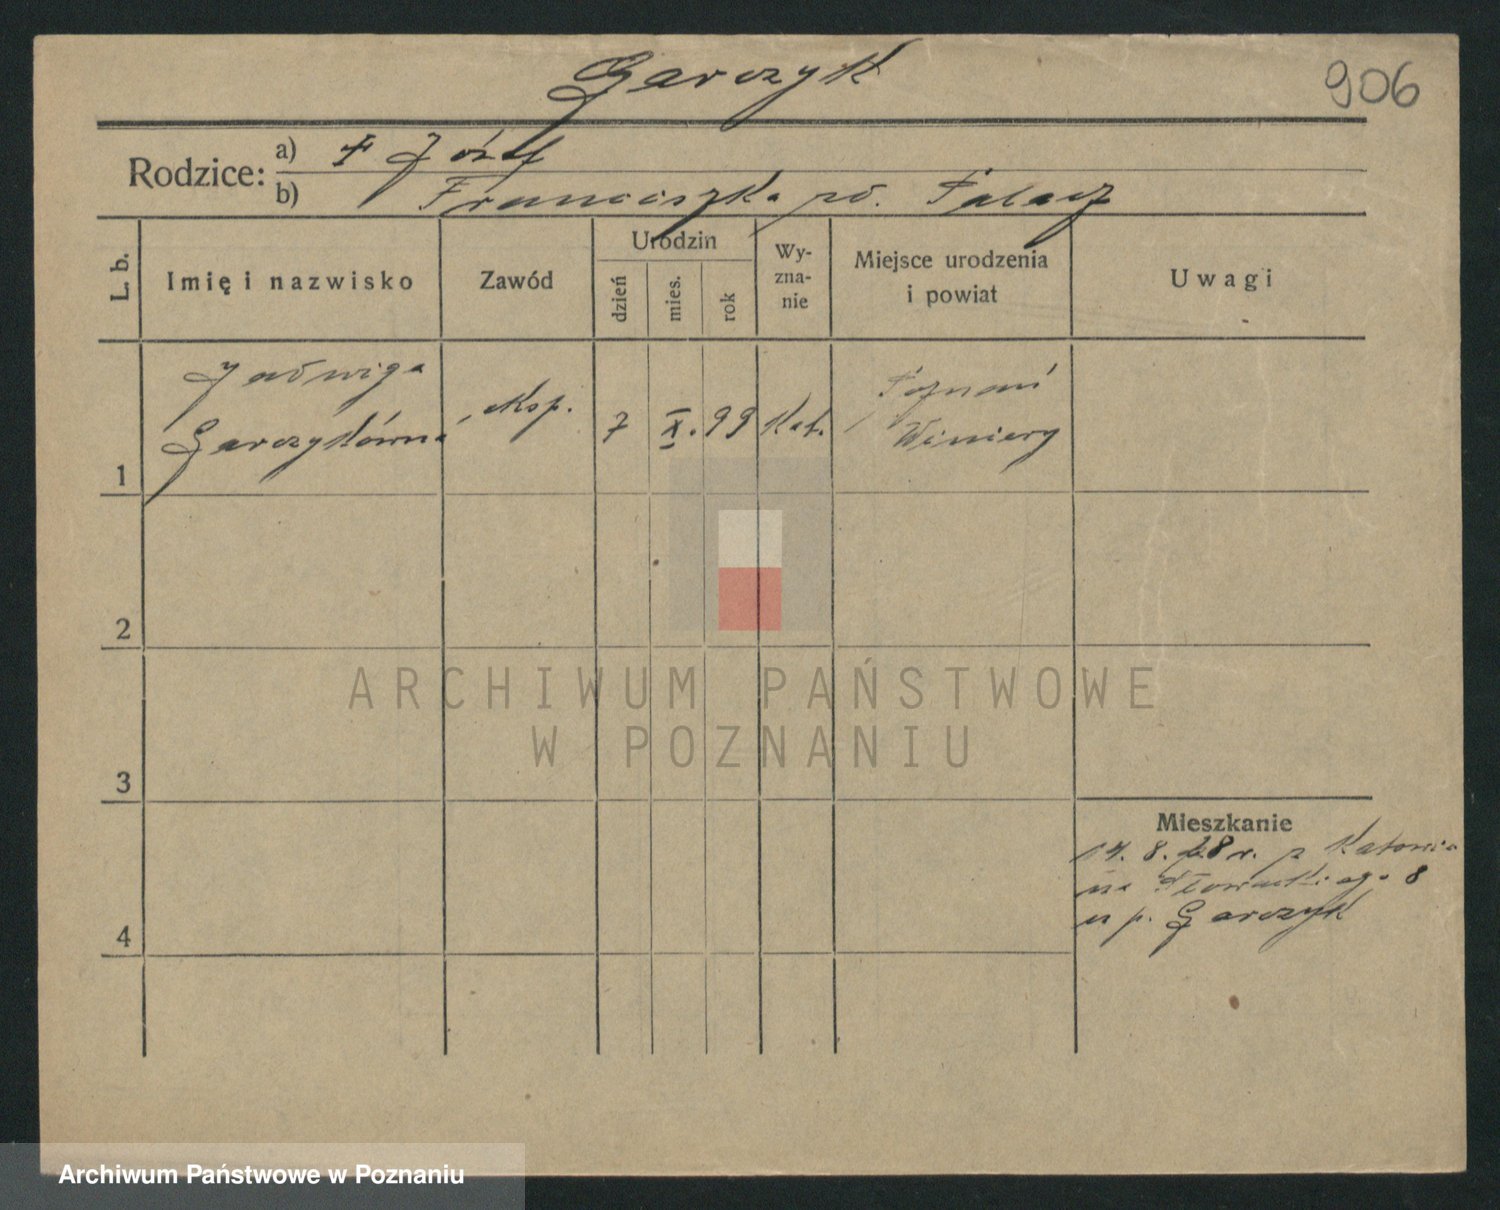 Garczyk
906
Rodzice:
a) † Józef
b) Franciszka zd. Palacz
L. b.
Imię i nazwisko
Zawód
Urodzin
dzień
mies.
rok
Wy-
zna-
nie
Miejsce urodzenia
i powiat
Uwagi
Jadwiga
Garczykówna
eksp.
7
X.
99
Kat.
Poznań
Winiary
1
2
3
4
ARCHIWUM PAŃSTWOWE
W POZNANIU
Mieszkanie
14. 8. 28 r. z Katowic
na Słowackiego 8
u p. Garczyk
Archiwum Państwowe w Poznaniu